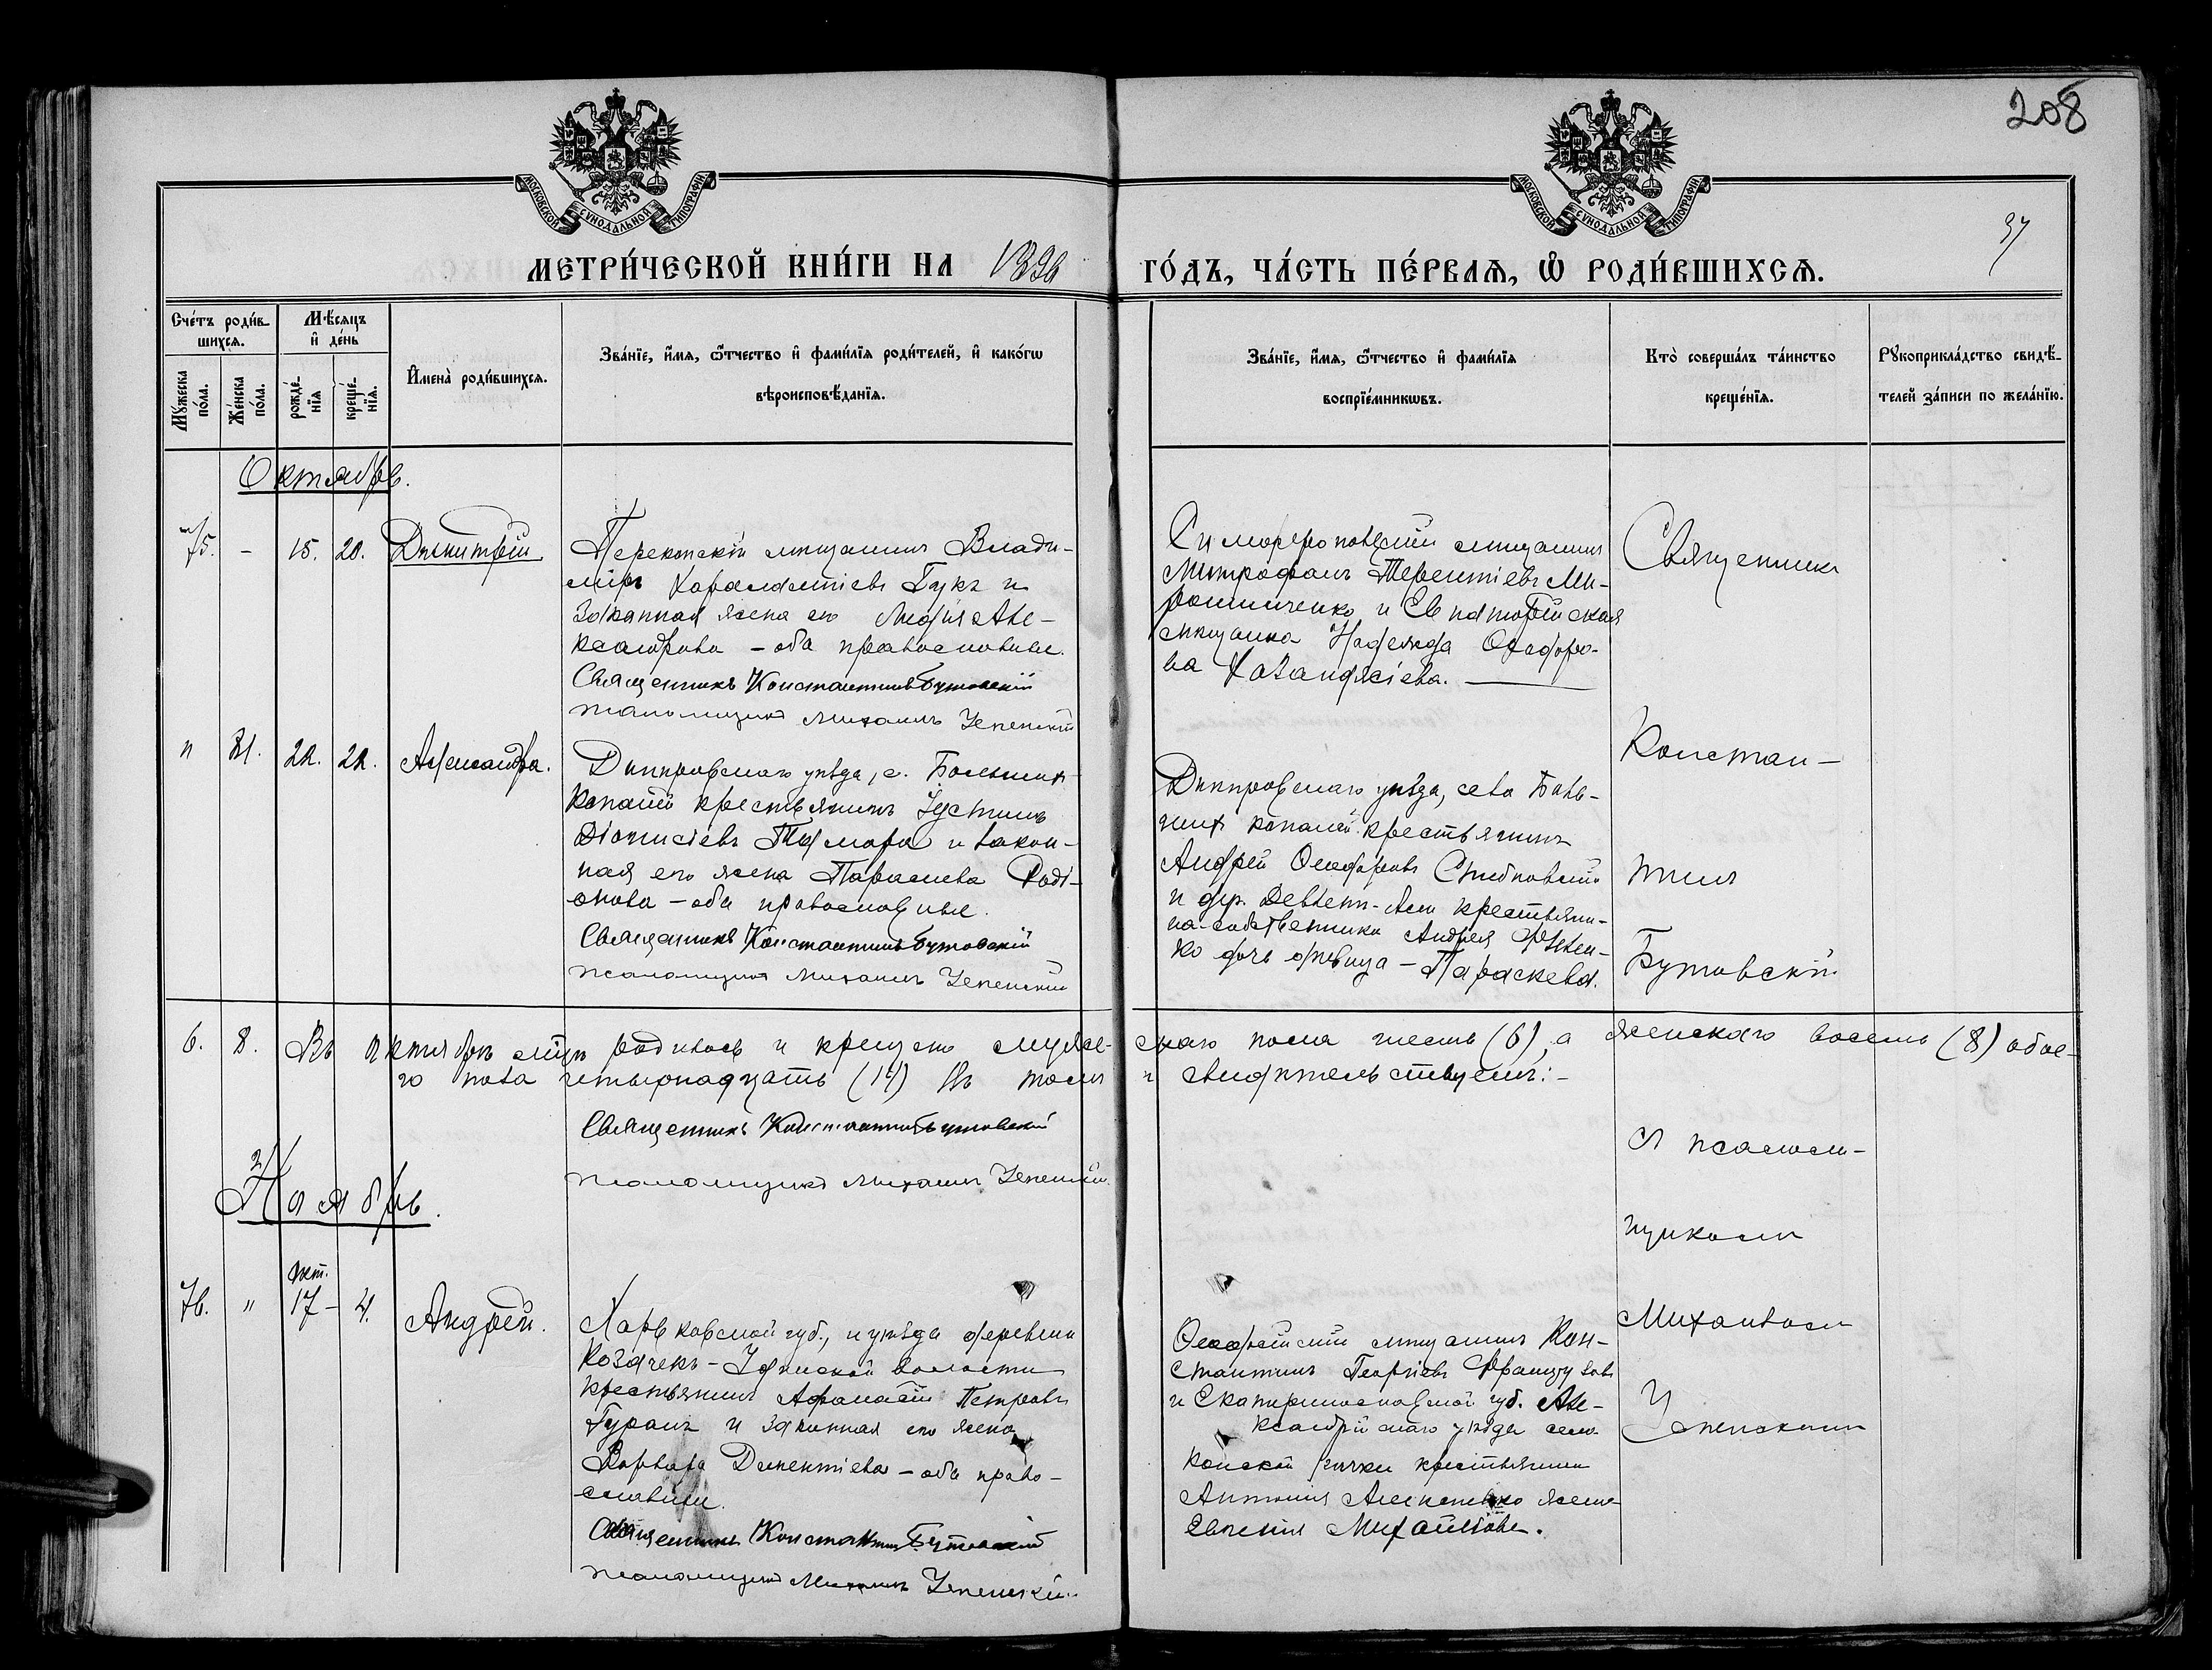 208
37
МОСКОВСКОЙ СѴНОДАЛЬНОЙ ТИПОГРАФІИ
МОСКОВСКОЙ СѴНОДАЛЬНОЙ ТИПОГРАФІИ
МЕТРИ́ЧЕСКОЙ КНИ́ГИ НА 1896 ГО́ДЪ, ЧА́СТЬ ПЕ́РВАЯ, Ѡ РОДИ́ВШИХСЯ.
Сче́тъ роди́в-
шихся.
Мѣ́сяцъ
и де́нь
Му́жеска
по́ла.
Же́нска
по́ла.
рожде́-
нія
креще́-
нія.
Имена̀ роди́вшихся.
Зва́ніе, и́мя, ѻ́тчество и фами́лія роди́телей, и како́гѡ
вѣроисповѣ́данія.
Зва́ніе, и́мя, ѻ́тчество и фами́лія
воспріе́мникѡвъ.
Кто̀ соверша́лъ та́инство
креще́нія.
Рꙋкоприкла́дство свидѣ́-
телей за́писи по жела́нію.
Октябрь.
75. - 15. 20. Димитрій
Перекопскій мѣщанинъ Влади-
міръ Харалампіевъ Гукъ и
законная жена его Лидія Але-
ксандрова - оба православные.
Священникъ Константинъ Бутовскій
Псаломщикъ Михаилъ Успенскій
Симферопольскій мѣщанинъ
Митрофанъ Терентіевъ Ми-
рошниченко и Евпаторійская
мѣщанка Надежда Ѳеодоро-
ва
Священникъ
" 81. 22. 22. Александра.
Днѣпровскаго уѣзда, с. Большихъ
Копаней крестьянинъ Іустинъ
Діонисіевъ и закон-
ная его жена Параскева Родi-
онова - оба православные.
Священникъ Константинъ Бутовскій
Псаломщикъ Михаилъ Успенскій
Днѣпровскаго уѣзда, села Боль-
шихъ Копаней крестьянинъ
Андрей Ѳеодоровъ
и дер. крестьяни-
на-собственника Андрея
ко дочь дѣвица - Параскева.
Констан-
тинъ
Бутовскій
6. 8. Въ Октябрѣ м-цѣ родилось и крещено мужес-
каго пола шесть (6), а женскаго восемь (8) обое-
го пола четырнадцать (14) въ томъ
и свидѣтельствуемъ:-
Священникъ Константинъ Бутовскій
Псаломщикъ Михаилъ Успенскій
съ псалом-
щикомъ
Михаиломъ
Успенскимъ
Ноябрь.
76. " Окт. 17 - 4. Андрей.
Харьковской губ., и уѣзда деревни
Козачекъ - волости
крестьянинъ Аѳанасій Петровъ
и законная его жена
Варвара - оба право-
славные.
Священникъ Константинъ Бутовскій
Псаломщикъ Михаилъ Успенскій
Ѳеодосійскій мѣщанинъ Кон-
стантинъ Георгіевъ
и Екатеринославской губ. Але-
ксандрійскаго уѣзда
крестьянина
Антонія жена
Евгенія Михайлова.